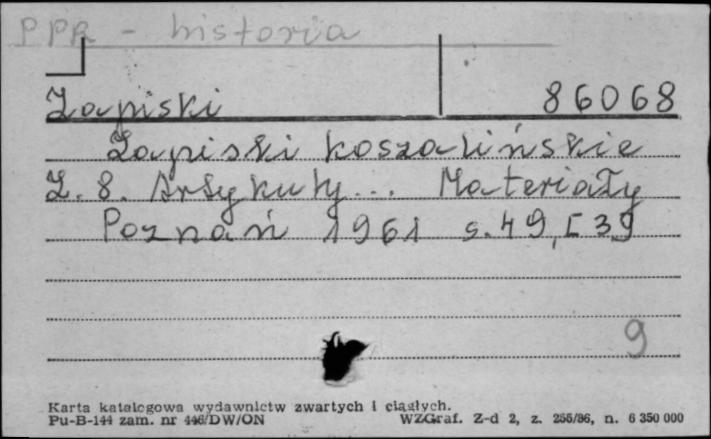 PPR - historia
Zapiski 86068
Zapiski koszalińskie
Z. 8. Artykuły... Materiały
Poznań 1961 s. 49, [39
9
Karta katalogowa wydawnictw zwartych i ciągłych.
Pu-B-144 zam. nr 446/DW/ON WZGraf. Z-d 2, z. 255/86, n. 6 350 000